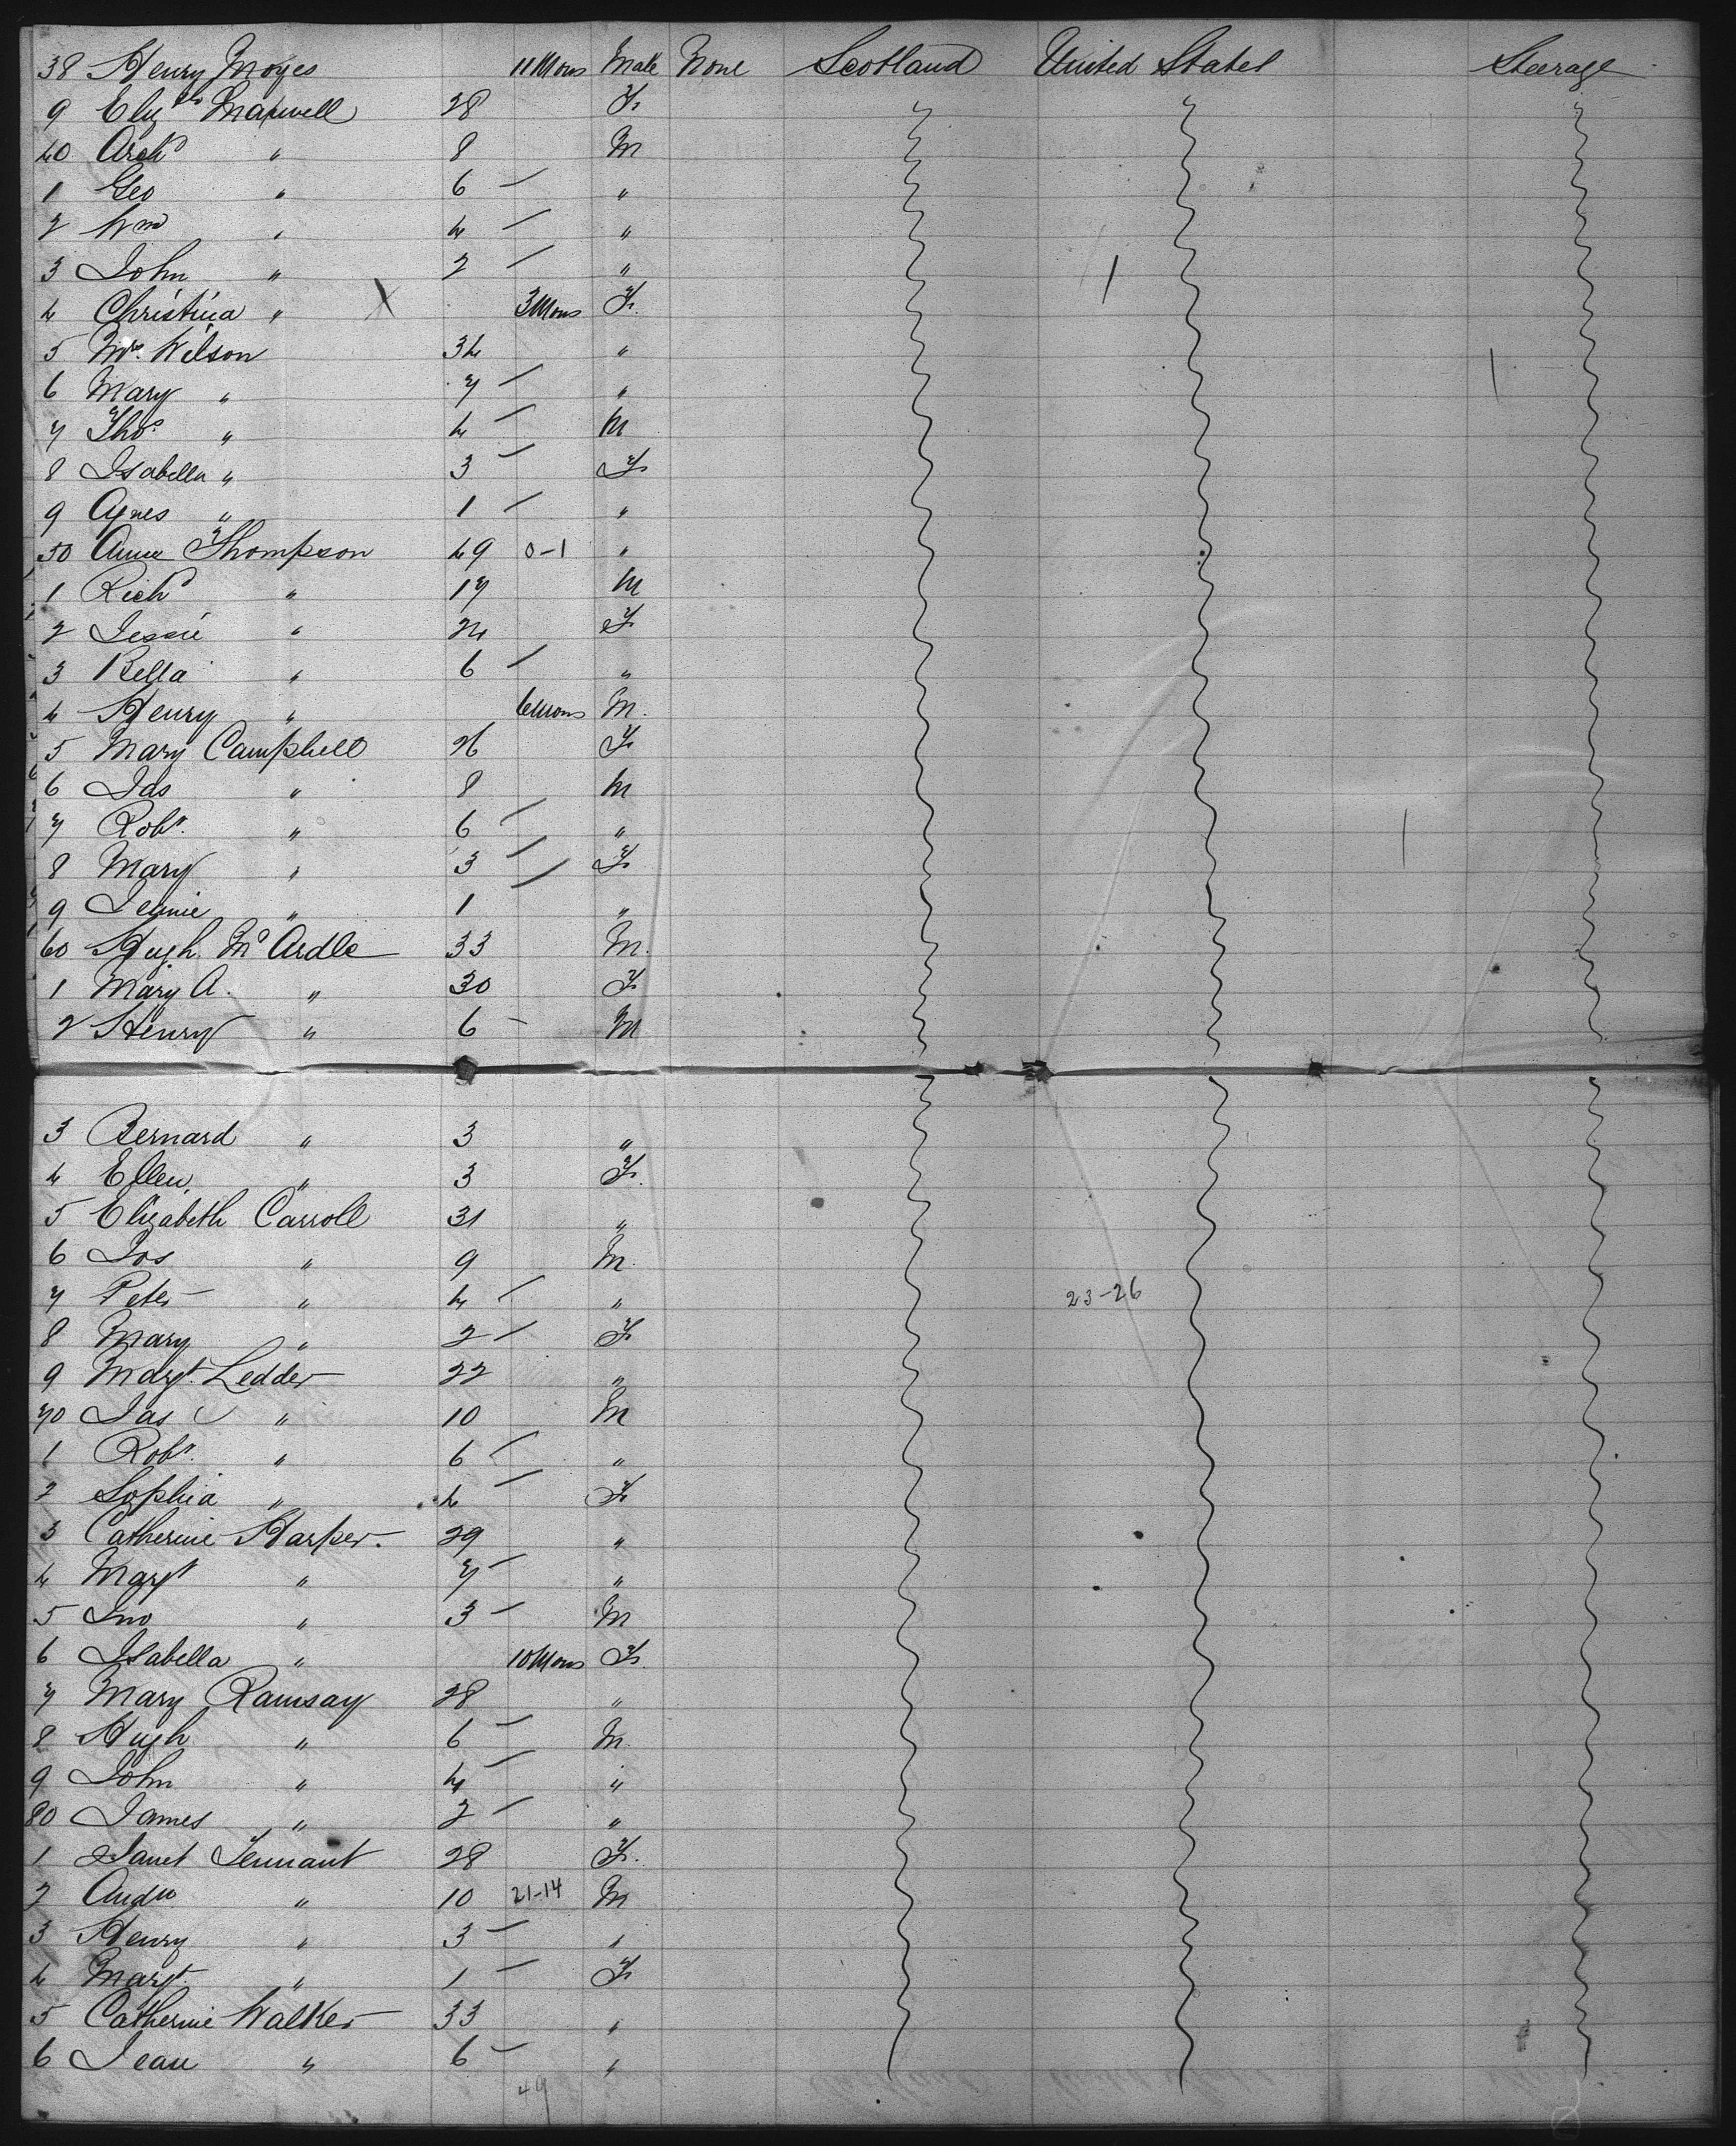 38 Henry Moyes 11 Mons Male None Scotland United States Steerage
9 Elizth Maxwell 28 F.
40 Archd " 8 M
1 Geo " 6 — "
2 Wm " 4 — "
3 John " 2 — "
4 Christina " X 3 Mons F.
5 Mrs. Wilson 34 "
6 Mary " 7 — "
7 Thos. " 4 — M
8 Isabella " 3 — F
9 Agnes " 1 — "
50 Anne Thompson 49 0-1 "
1 Richd " 17 M
2 Jessie " 24 F
3 Bella " 6 — "
4 Henry " 6 Mons M.
5 Mary Campbell 26 F
6 Jas " 8 M
7 Robt. " 6 — "
8 Mary " 3 — F.
9 Jeanie " 1 — "
60 Hugh Mc Ardle 33 M.
1 Mary A. " 30 F.
2 Henry " 6 — M
3 Bernard " 3 "
4 Ellen " 3 F.
5 Elizabeth Carroll 31 "
6 Jos " 9 M.
7 Peter " 4 — " 23-26
8 Mary " 2 — F
9 Margt. Ledder 22 "
70 Jas " 10 M
1 Robt. " 6 — "
2 Sophia " 4 — F
3 Catherine Harper. 29 "
4 Margt " 7 — "
5 Jno " 3 — M
6 Isabella " 10 Mons F.
7 Mary Ramsay 28 "
8 Hugh " 6 — M.
9 John " 4 — "
80 James " 2 — "
1 Janet Tennant 28 F.
2 Andw " 10 21-14 M
3 Henry " 3 — "
4 Margt. " 1 — F
5 Catherine Walker 33 "
6 Jean " 6 — "
49